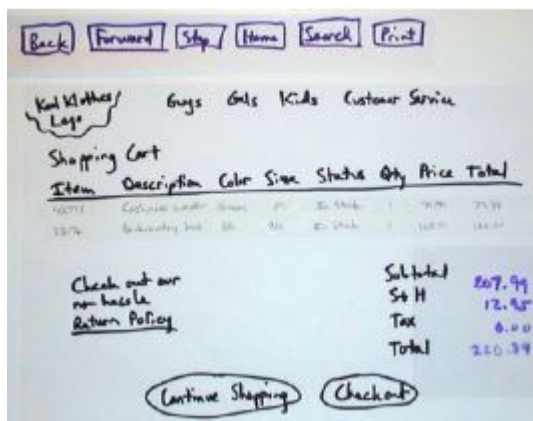 Back Forward Stop Home Search Print
Kool Klothes Guys Gals Kids Customer Service
Logo
Shopping Cart
Item Description Color Size Status Qty Price Total
In Stock
In Stock
Check out our
no hassle
Return Policy
Subtotal 207.99
S+H 12.95
Tax 0.00
Total
Continue Shopping Checkout